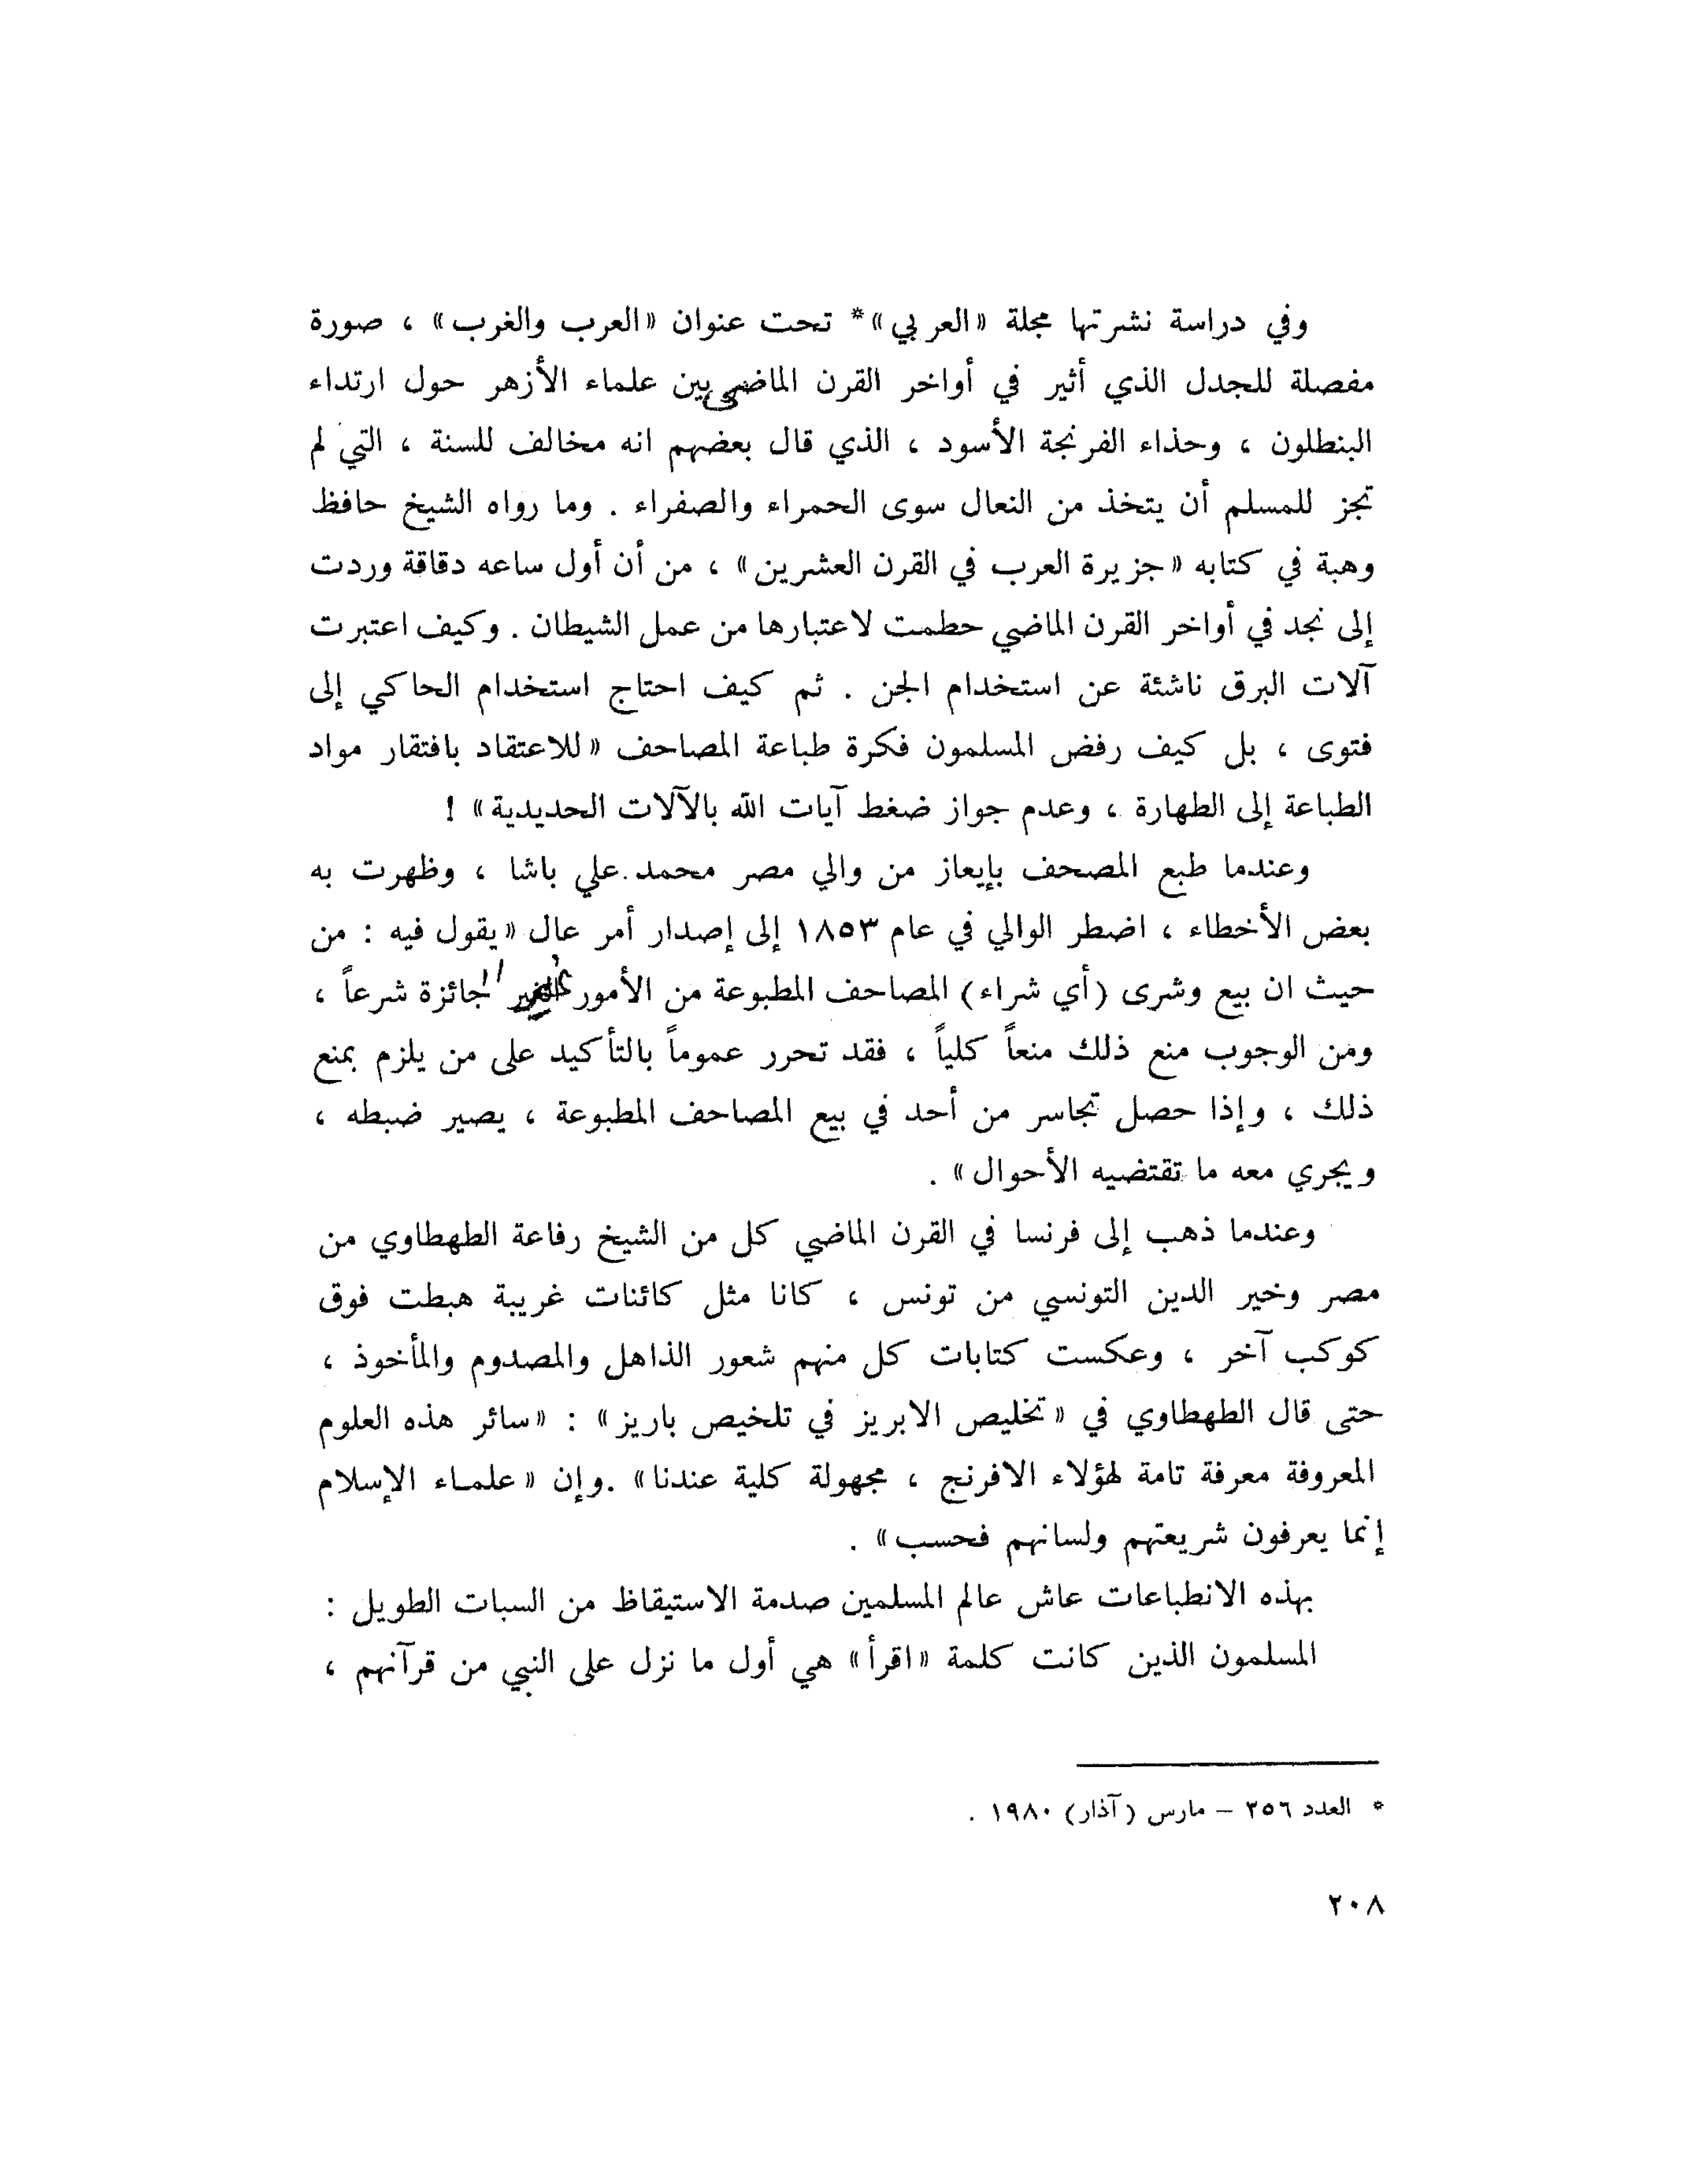 وفي دراسة نشرتها مجلة «العربي»* تحت عنوان «العرب والغرب» ، صورة
مفصلة للجدل الذي أثير في أواخر القرن الماضي بين علماء الأزهر حول ارتداء
البنطلون ، وحذاء الفرنجة الأسود ، الذي قال بعضهم انه مخالف للسنة ، التي لم
تجز للمسلم أن يتخذ من النعال سوى الحمراء والصفراء . وما رواه الشيخ حافظ
وهبة في كتابه «جزيرة العرب في القرن العشرين» ، من أن أول ساعه دقاقة وردت
إلى نجد في أواخر القرن الماضي حطمت لاعتبارها من عمل الشيطان . وكيف اعتبرت
آلات البرق ناشئة عن استخدام الجن . ثم كيف احتاج استخدام الحاكي إلى
فتوى ، بل كيف رفض المسلمون فكرة طباعة المصاحف «للاعتقاد بافتقار مواد
الطباعة إلى الطهارة ، وعدم جواز ضغط آيات الله بالآلات الحديدية» !
وعندما طبع المصحف بإيعاز من والي مصر محمد علي باشا ، وظهرت به
بعض الأخطاء ، اضطر الوالي في عام ١٨٥٣ إلى إصدار أمر عال «يقول فيه : من
حيث ان بيع وشرى (أي شراء) المصاحف المطبوعة من الأمور جائزة شرعاً ،
ومن الوجوب منع ذلك منعاً كلياً ، فقد تحرر عموماً بالتأكيد على من يلزم بمنع
ذلك ، وإذا حصل تجاسر من أحد في بيع المصاحف المطبوعة ، يصير ضبطه ،
ويجري معه ما تقتضيه الأحوال» .
وعندما ذهب إلى فرنسا في القرن الماضي كل من الشيخ رفاعة الطهطاوي من
مصر وخير الدين التونسي من تونس ، كانا مثل كائنات غريبة هبطت فوق
كوكب آخر ، وعكست كتابات كل منهم شعور الذاهل والمصدوم والمأخوذ ،
حتى قال الطهطاوي في «تخليص الابريز في تلخيص باريز» : «سائر هذه العلوم
المعروفة معرفة تامة لهؤلاء الافرنج ، مجهولة كلية عندنا» .وإن «علماء الإسلام
إنما يعرفون شريعتهم ولسانهم فحسب» .
بهذه الانطباعات عاش عالم المسلمين صدمة الاستيقاظ من السبات الطويل :
المسلمون الذين كانت كلمة «اقرأ» هي أول ما نزل على النبي من قرآنهم ،
* العدد ٢٥٦ – مارس (آذار) ١٩٨٠ .
٢٠٨